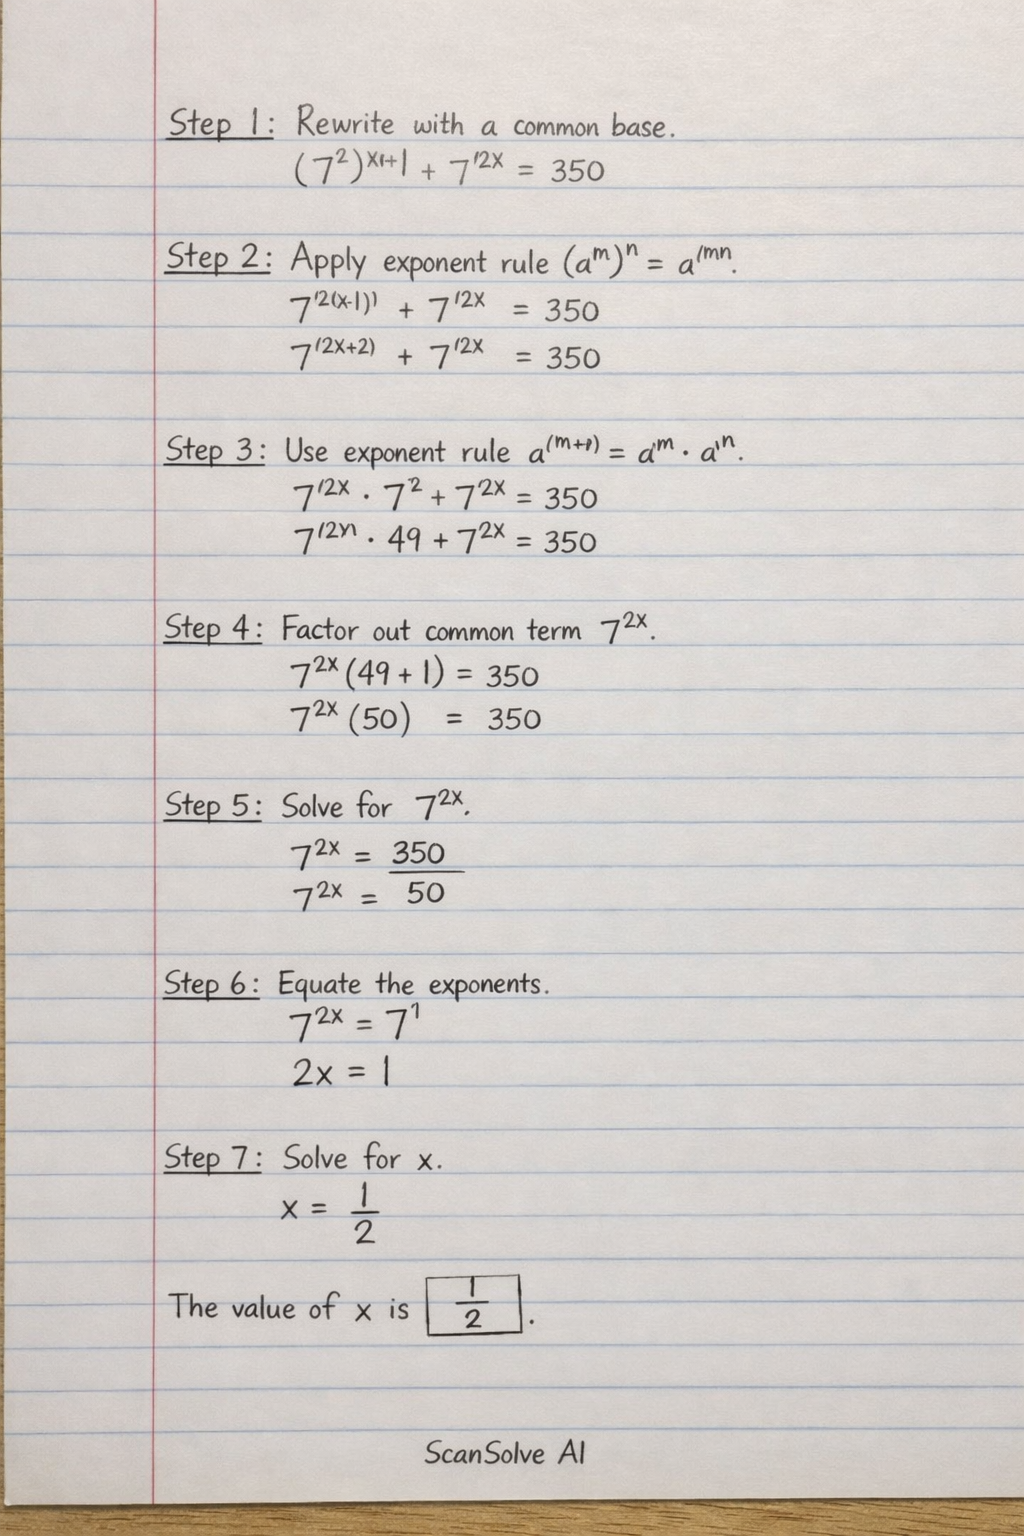 Step 1: Rewrite with a common base.
(7²)^x(1+1 + 7^(2x = 350
Step 2: Apply exponent rule (a^m)^n = a^(mn.
7^(2(x-1)) + 7^(2x = 350
7^(2x+2) + 7^(2x = 350
Step 3: Use exponent rule a^(m+n) = a^m · a^n.
7^(2x · 7² + 7^2x = 350
7^(2x) · 49 + 7^2x = 350
Step 4: Factor out common term 7^2x.
7^2x (49 + 1) = 350
7^2x (50) = 350
Step 5: Solve for 7^2x.
7^2x = 350
7^2x = 50
Step 6: Equate the exponents.
7^2x = 7^1
2x = 1
Step 7: Solve for x.
x = 1/2
The value of x is 1/2.
ScanSolve AI